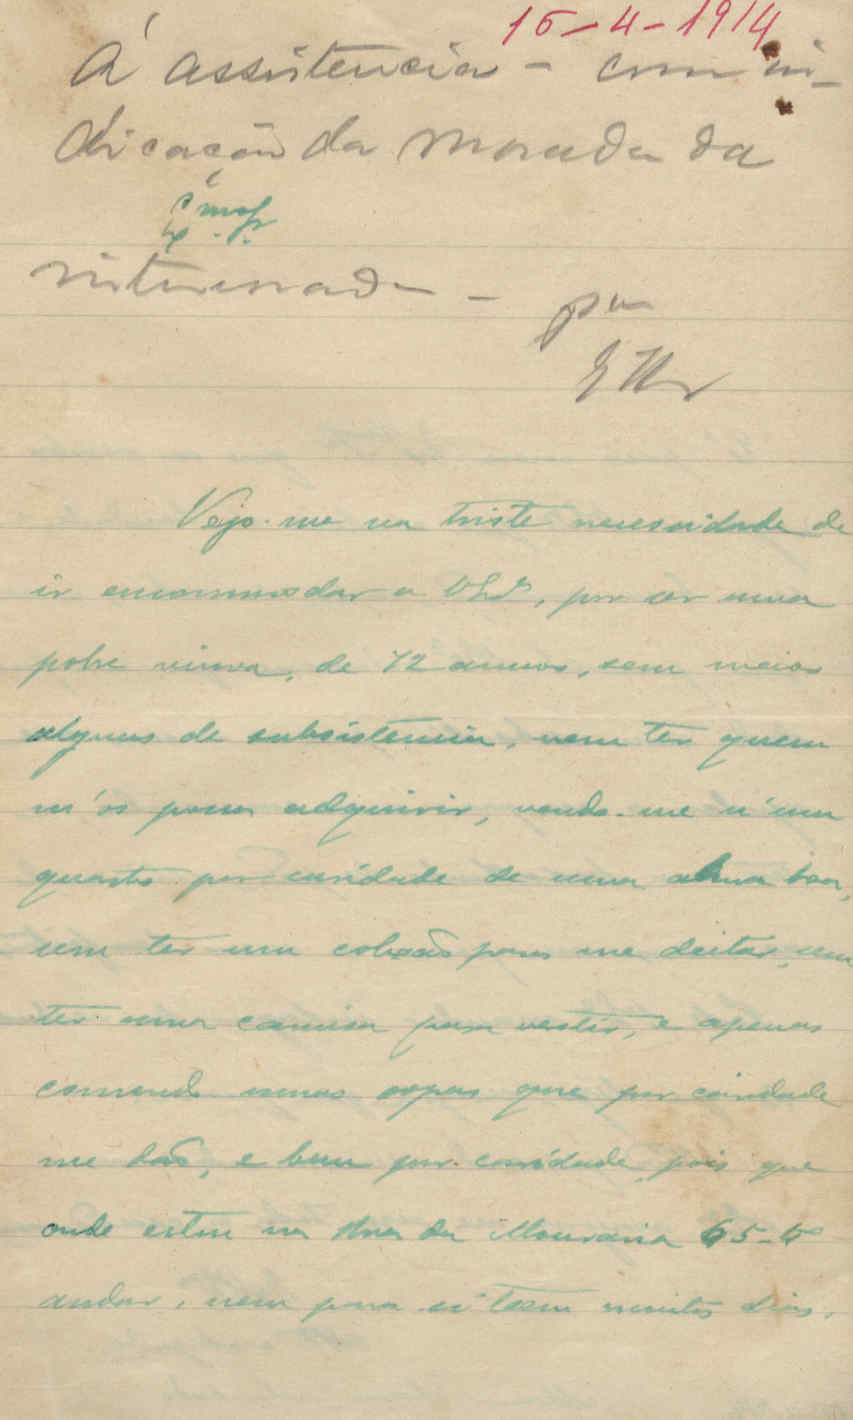 15-4-1914
Á assistencia - com in-
dicação da morada da
Exma
interessada -
Vejo-me na triste necessidade de
ir encommodar a V. Exª, por ser uma
pobre viuva, de 72 annos, sem meios
alguns de subsistencia, nem ter quem
m'os possa adquirir, vendo-me n'um
quarto por caridade de uma alma boa,
sem ter um colxão para me deitar, sem
ter uma camisa para vestir, e apenas
comendo umas sopas que por caridade
me dão, e bem por caridade, pois que
onde estou na Rua da Mouraria 65-4º
andar, nem para si teem muitos dias.